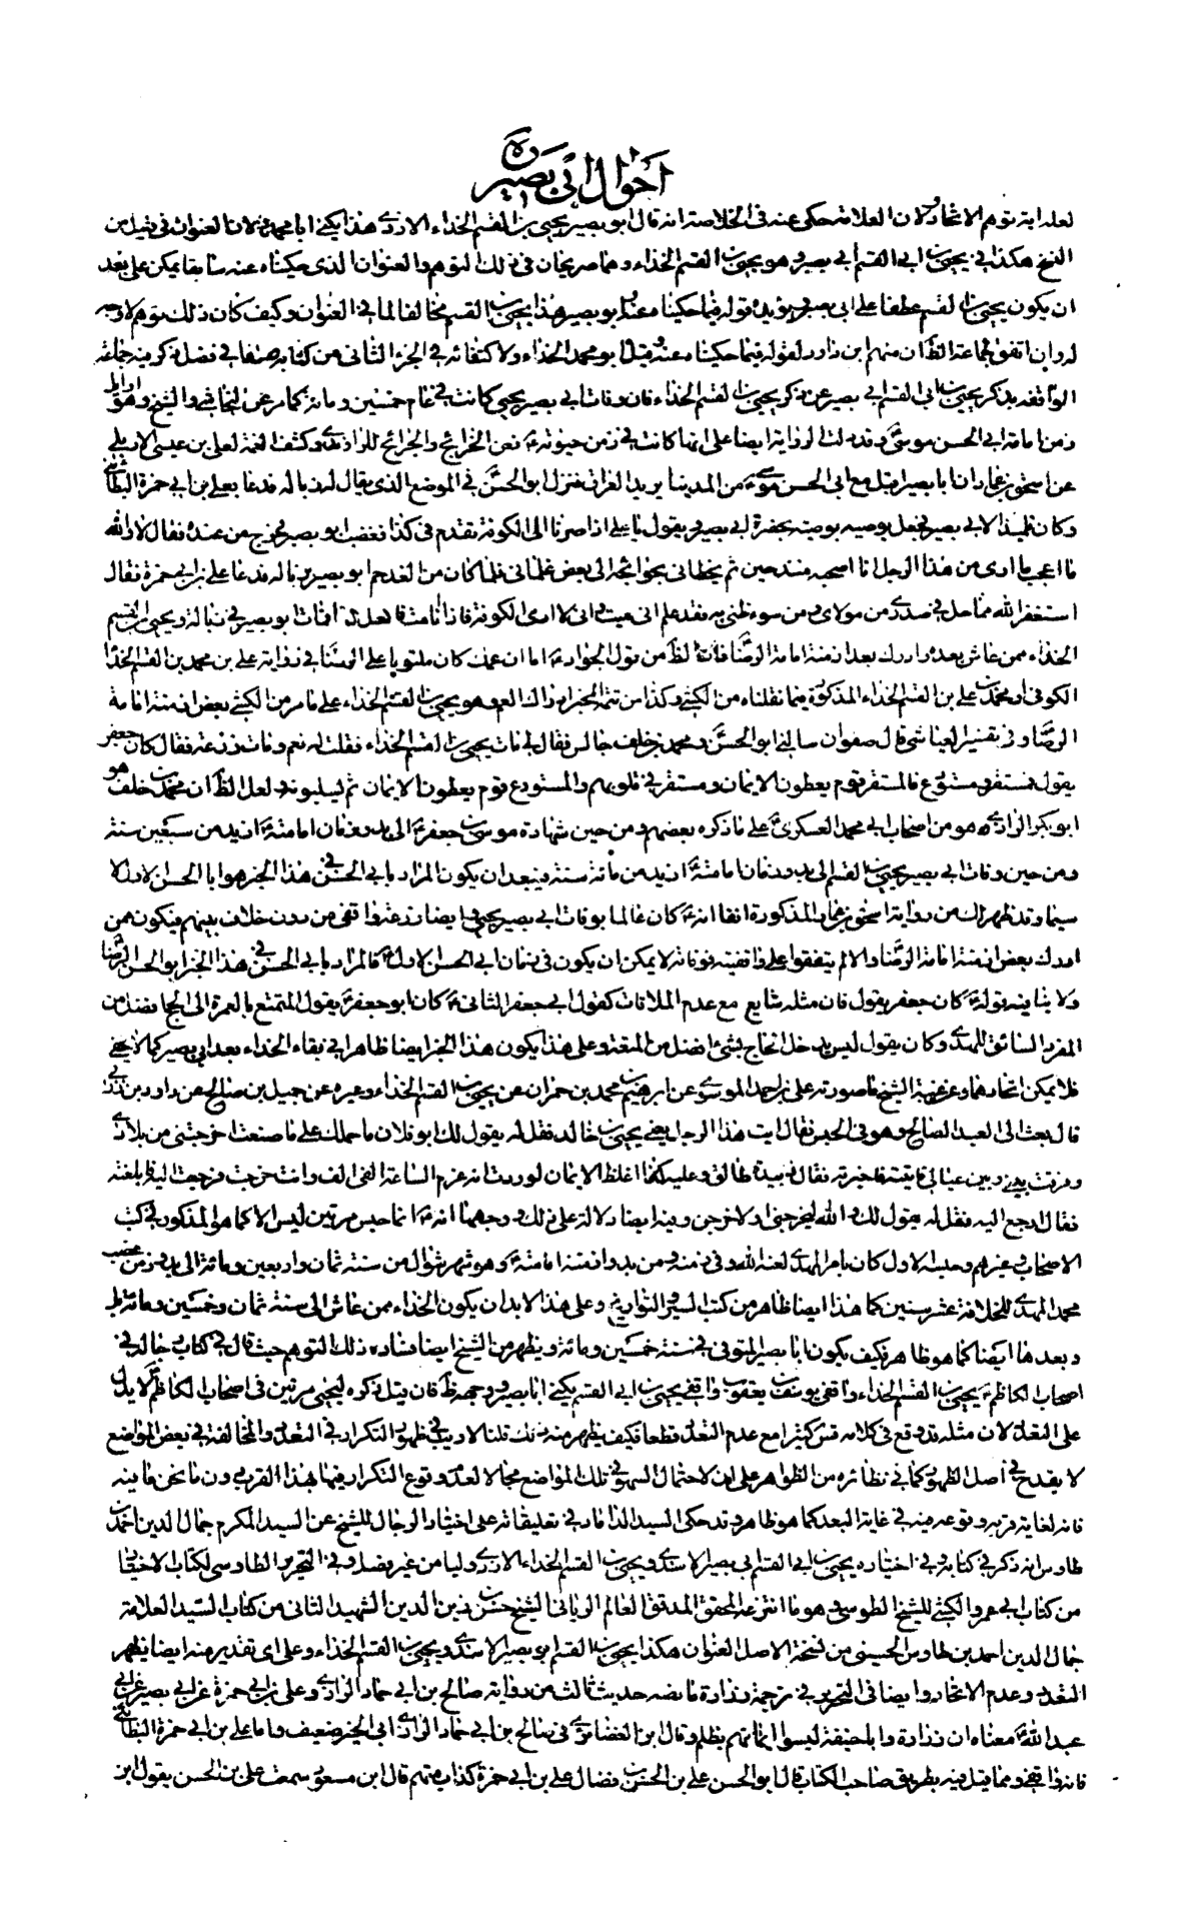 احوال ابي بصير ره
لعله اية توهم الاتحاد لان العلامة حكى عنه في الخلاصة انه قال ابو بصير يحيى بن القسم الحذاء الازدي هذا يكنى ابا محمد ولان العنوان في قليل من
النسخ هكذا في يحيى بن ابي القسم ابي بصير وهو يحيى بن القسم الحذاء وهما صريحان في ذلك التوهم والعنوان الذي حكيناه عنه سابقا يمكن على بعد
ان يكون يحيى بن القسم عطفا على ابي بصير ويؤيده قوله فيما حكينا عنه وابو بصير هذا يحيى بن القسم مخالفا لما في العنوان وكيف كان ذلك توهم لا وجه
له وان اتفق لجماعة الظ ان منهم ابن داود لقوله فيما حكيناه عنه وقيل ابو محمد الحذاء ولاكتفائه في الجزء الثاني من كتابه صنفا في فصل ذكر فيه جماعة
الواقفة بذكر يحيى بن ابي القسم ابي بصير عن ذكر يحيى بن القسم الحذاء فان وفات ابي بصير يحيى كانت في عام خمسين ومائة كما مر عن النجاشي والشيخ وهو اوايل
زمن امامة ابي الحسن موسى ع وقد دلت الرواية ايضا على انها كانت في زمن حيوته ع فعن الخرائج والجرائح للراوندي وكشف الغمة لعلي بن عيسى الاربلي
عن اسحق بن عمار ان ابا بصير اقبل مع ابي الحسن موسى ع من المدينة يريد العراق فنزل ابو الحسن ع في الموضع الذي يقال له زبالة فدعا بعلي بن ابي حمزة البطائني
وكان تلميذا لابي بصير فجعل يوصيه بوصية بحضرة ابي بصير ويقول يا علي اذا صرنا الى الكوفة تقدم في كذا فغضب ابو بصير فخرج من عنده فقال لا والله
ما اعجب ما ارى من هذا الرجل انا اصحبه منذ حين ثم يخطاني بحوائجه الى بعض غلماني فلما كان من الغد حم ابو بصير بزبالة فدعا علي بن ابي حمزة فقال
استغفر الله مما حل في صدري من مولاي ومن سوء ظني به فقد علم اني ميت واني لا ارى الكوفة فاذا انا مت فافعل كذا فمات ابو بصير في زبالة ويحيى بن القسم
الحذاء ممن عاش بعده وادرك بعد ازمنة امامة الرضا ع فان الظ من قول الجواد ع اما ان عمك كان ملتويا على الرضا ع في رواية علي بن محمد بن القسم الحذاء
الكوفي او محمد بن علي بن القسم الحذاء المذكورة فيما نقلناه من الكشي وكذا من تتمة الخبر ان ذاك العم وهو يحيى بن القسم الحذاء على ما مر من الكشي بعض ازمنة امامة
الرضا ع وفي تفسير العياشي قال صفوان سالني ابو الحسن ع ومحمد بن خلف جالس فقال لي مات يحيى بن القسم الحذاء فقلت له نعم ومات زرعة فقال كان جعفر ع
يقول فمستقر ومستودع فالمستقر قوم يعطون الايمان ومستقر في قلوبهم والمستودع قوم يعطون الايمان ثم يسلبونه ولعل الظ ان محمد بن خلف هو
ابو بكر الرازي وهو من اصحاب ابي محمد العسكري ع على ما ذكره بعضهم ومن حين شهادة موسى بن جعفر ع الى بدو زمان امامته ع ازيد من سبعين سنة
ومن حين وفات ابي بصير يحيى بن القسم الى بدو زمان امامته ع ازيد من مائة سنة فيبعد ان يكون المراد بابي الحسن في هذا الخبر هو ابا الحسن الاول لا
سيما وقد ظهر لك من رواية اسحق بن عمار المذكورة انفا انه ع كان عالما بوفات ابي بصير يحيى وايضا زرعة واقفي من دون خلاف بينهم فيكون ممن
ادرك بعض ازمنة امامة الرضا ع والا لم يتفقوا على واقفيته فوفاته لا يمكن ان يكون في زمان ابي الحسن الاول ع فالمراد بابي الحسن في هذا الخبر ابو الحسن الرضا
ولا ينافيه قوله ع كان جعفر يقول فان مثله شايع مع عدم الملاقات كقول ابي جعفر الثاني ع كان ابو جعفر ع يقول المتمتع بالعمرة الى الحج افضل من
المفرد السائق للهدي وكان يقول ليس يدخل الحاج بشيء افضل من المتعة وعلى هذا يكون هذا الخبر ايضا ظاهرا في بقاء الحذاء بعد ابي بصير كما لا يخفى
فلا يمكن اتحادهما وعن غيبة الشيخ ما صورته علي بن احمد الموسوي عن ابرهيم بن محمد بن حمران عن يحيى بن القسم الحذاء وغيره عن جميل بن صالح عن داود بن زربي
قال بعث الى العبد الصالح وهو في الحبس فقال ايت هذا الرجل يعني يحيى بن خالد فقل له يقول لك ابو فلان ما حملك على ما صنعت اخرجتني من بلادي
وفرقت بيني وبين عيالي فاتيته فاخبرته فقال زبيدة طالق وعليه كذا اغلظ الايمان لوددت انه غرم الساعة الفي الف وانت خرجت فرجعت اليه فابلغته
فقال ارجع اليه فقل له يقول لك والله لتخرجني او لاخرجن وفيه ايضا دلالة على ذلك وجهها انه ع انما حبس مرتين ليس الا كما هو المذكور في كتب
الاصحاب وغيرهم وحبسه الاول كان بامر المهدي لعنه الله وفي زمنه ومن بدو ازمنة امامته ع وهو شهر شوال من سنة ثمان واربعين ومائة الى بدو زمن غصب
محمد المهدي للخلافة عشر سنين كما هذا ايضا ظاهر من كتب السير والتواريخ وعلى هذا لابد ان يكون الحذاء ممن عاش الى سنة ثمان وخمسين ومائة بل
وبعدها ايضا كما هو ظاهر فكيف يكون ابا بصير المتوفى في سنة خمسين ومائة ويظهر من الشيخ ايضا فساد ذلك التوهم حيث قال في كتاب رجاله في
اصحاب الكاظم ع يحيى بن القسم الحذاء واقفي يوسف بن يعقوب واقفي يحيى بن ابي القسم يكنى ابا بصير وجهه ظ فان قيل ذكره ليحيى مرتين في اصحاب الكاظم ع لا يدل
على التعدد لان مثله قد وقع في كلامه قس كثيرا مع عدم التعدد قطعا فكيف يظهر منه ذلك قلنا لا ريب في ظهور التكرار في التعدد والمخالفة في بعض المواضع
لا يقدح في اصل الظهور كما في نظائره من الظواهر على ان لاحتمال السهو في تلك المواضع مجالا لعدم وقوع التكرار فيها بهذا القرب دون ما نحن فيه
فانه لغاية قربه وقوعه فيه في غاية البعد كما هو ظاهر وقد حكى السيد الداماد في تعليقاته على اختيار الرجال للشيخ عن السيد المكرم جمال الدين احمد بن
طاوس انه ذكر في كتابه وفي اختياره يحيى بن ابي القسم ابي بصير الاسدي ويحيى بن القسم الحذاء الازدي وليا من غير فصل وفي التحرير الطاوسي لكتاب الاختيار
من كتاب ابي عمرو الكشي للشيخ الطوسي وهو ما انتزعه المحقق المدقق العالم الرباني الشيخ حسن بن زين الدين الشهيد الثاني من كتاب السيد العلامة
جمال الدين احمد بن طاوس الحسيني من نسخة الاصل العنوان هكذا يحيى بن القسم ابو بصير الاسدي ويحيى بن القسم الحذاء وعلى اي تقدير منه ايضا يظهر
التعدد وعدم الاتحاد وايضا في التحرير في ترجمة زرارة ما نصه حديث ثالث من رواية صالح بن ابي حماد الرازي وعلي بن ابي حمزة عن ابي بصير عن ابي
عبد الله ع معناه ان زرارة وابا حنيفة ليسوا ايمانهم بظلم وقال ابن الغضائري في صالح بن ابي حماد الرازي ابي الخير ضعيف واما علي بن ابي حمزة البطائني
فانه واقفي ومما قيل فيه بطريق صاحب الكتاب قال ابو الحسن علي بن الحسن بن فضال علي بن ابي حمزة كذاب متهم قال ابن مسعود سمعت علي بن الحسن يقول ابن